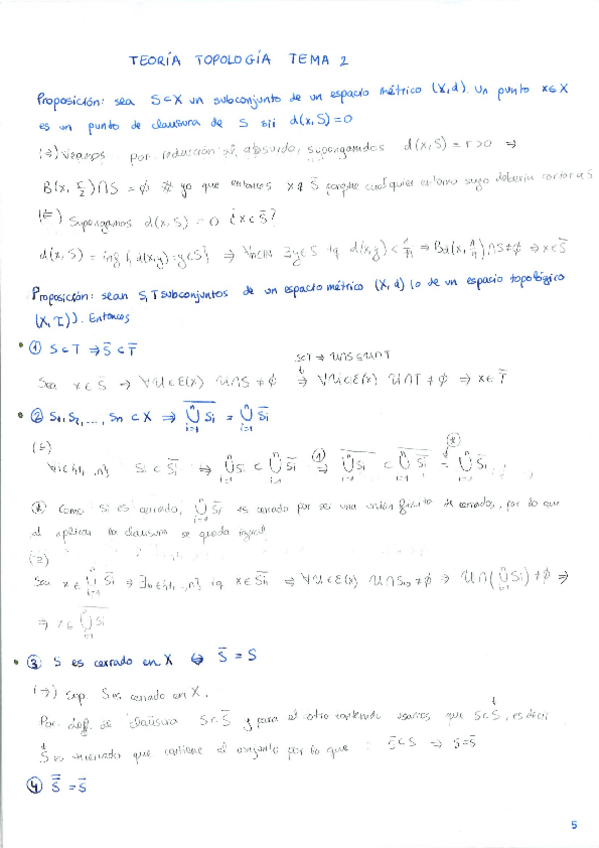 TEORÍA TOPOLOGÍA TEMA 2
Proposición: sea S⊂X un subconjunto de un espacio métrico (X,d). Un punto x∈X
es un punto de clausura de S sii d(x,S)=0
(⇒) Veamos por reducción al absurdo, supongamos d(x,S)=r>0 ⇒
B(x, r/2)∩S=∅ # ya que entonces x∉S̄ porque cualquier entorno suyo debería cortar a S
(⇐) Supongamos d(x,S)=0 ¿x∈S̄?
d(x,S) = inf{d(x,y): y∈S} ⇒ ∀n∈ℕ ∃y∈S tq d(x,y)<1/n ⇒ Bd(x,1/n)∩S≠∅ ⇒ x∈S̄
Proposición: sean S,T subconjuntos de un espacio métrico (X,d) (o de un espacio topológico
(X,τ)). Entonces
• ① S⊂T ⇒ S̄⊂T̄
S⊂T ⇒ U∩S⊆U∩T
Sea x∈S̄ ⇒ ∀U∈E(x) U∩S≠∅ ⇒ ∀U∈E(x) U∩T≠∅ ⇒ x∈T̄
• ② S₁,S₂,...,Sn⊂X ⇒ \overline{⋃ᵢ₌₁ⁿ Si} = ⋃ᵢ₌₁ⁿ S̄i
(⊆)
∀i∈{1,..,n} Si⊂S̄i ⇒ ⋃ᵢ₌₁ⁿ Si ⊂ ⋃ᵢ₌₁ⁿ S̄i ①⇒ \overline{⋃ᵢ₌₁ⁿ Si} ⊂ \overline{⋃ᵢ₌₁ⁿ S̄i} =(*) ⋃ᵢ₌₁ⁿ S̄i
(*) Como S̄i es cerrado, ⋃ᵢ₌₁ⁿ S̄i es cerrado por ser una unión finita de cerrados, por lo que
al aplicar la clausura se queda igual
(⊇)
Sea x∈⋃ᵢ₌₁ⁿ S̄i ⇒ ∃i₀∈{1,..,n} tq x∈S̄i₀ ⇒ ∀U∈E(x) U∩Si₀≠∅ ⇒ U∩(⋃ᵢ₌₁ⁿ Si)≠∅ ⇒
⇒ x∈\overline{⋃ᵢ₌₁ⁿ Si}
• ③ S es cerrado en X ⇔ S̄=S
(⇒) Sup. S es cerrado en X.
Por def. de clausura S⊂S̄ y para el otro contenido usamos que S⊂S, es decir
S es un cerrado que contiene el conjunto por lo que S̄⊂S ⇒ S=S̄
④ S̿=S̄
5